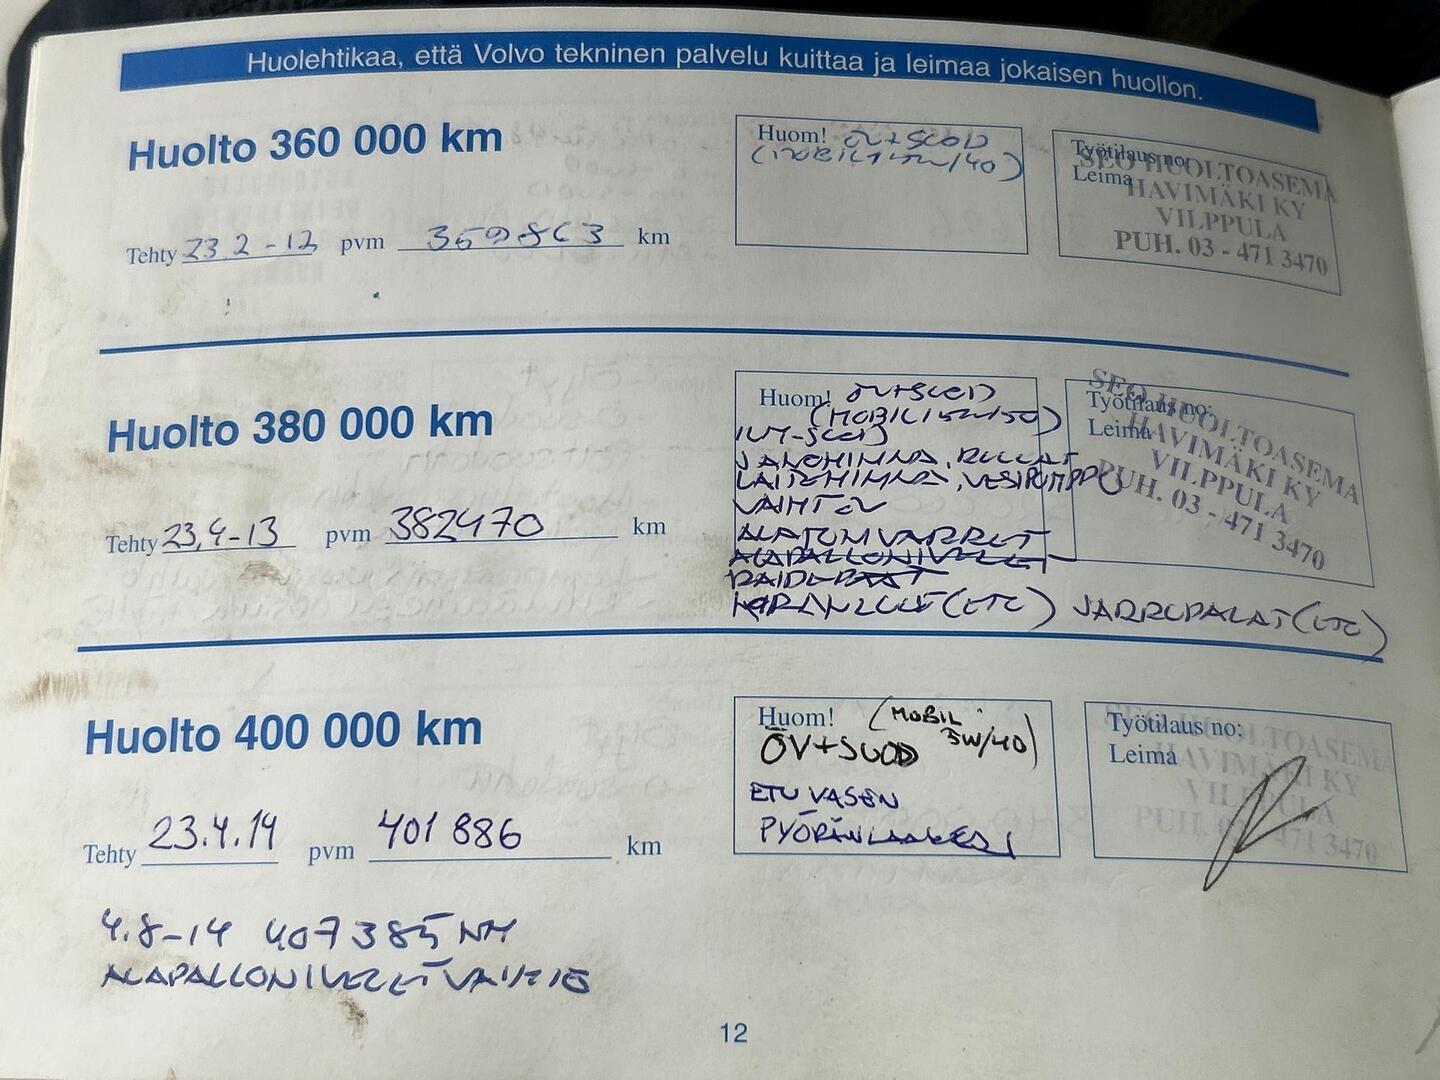 Huolehtikaa, että Volvo tekninen palvelu kuittaa ja leimaa jokaisen huollon.
Huolto 360 000 km
Huom! ÖV+SUOD
(MOBIL 15W/40)
Työtilaus no:
Leima
SEO HUOLTOASEMA
HAVIMÄKI KY
VILPPULA
PUH. 03 - 471 3470
Tehty 23.2-12 pvm 359863 km
Huolto 380 000 km
Huom! ÖV+SUOD
(MOBIL 15W/50)
ILM-SUOD
JAKOHIHNA, RULLAT
LAITEHIHNA, VESIPUMPPU
VAIHTO
ALATUKIVARRET
ALAPALLONIVELET
(ETU) JARRUPALAT (ETU)
Työtilaus no:
Leima
SEO HUOLTOASEMA
HAVIMÄKI KY
VILPPULA
PUH. 03 - 471 3470
Tehty 23.4-13 pvm 382470 km
Huolto 400 000 km
Huom! (MOBIL
ÖV+SUOD 5W/40)
ETU VASEN
PYÖRÄNLAAKERI
Työtilaus no:
Leima
SEO HUOLTOASEMA
HAVIMÄKI KY
VILPPULA
PUH. 03 - 471 3470
Tehty 23.4.14 pvm 401 886 km
4.8-14 407385 KM
ALAPALLONIVELET VAIHTO
12